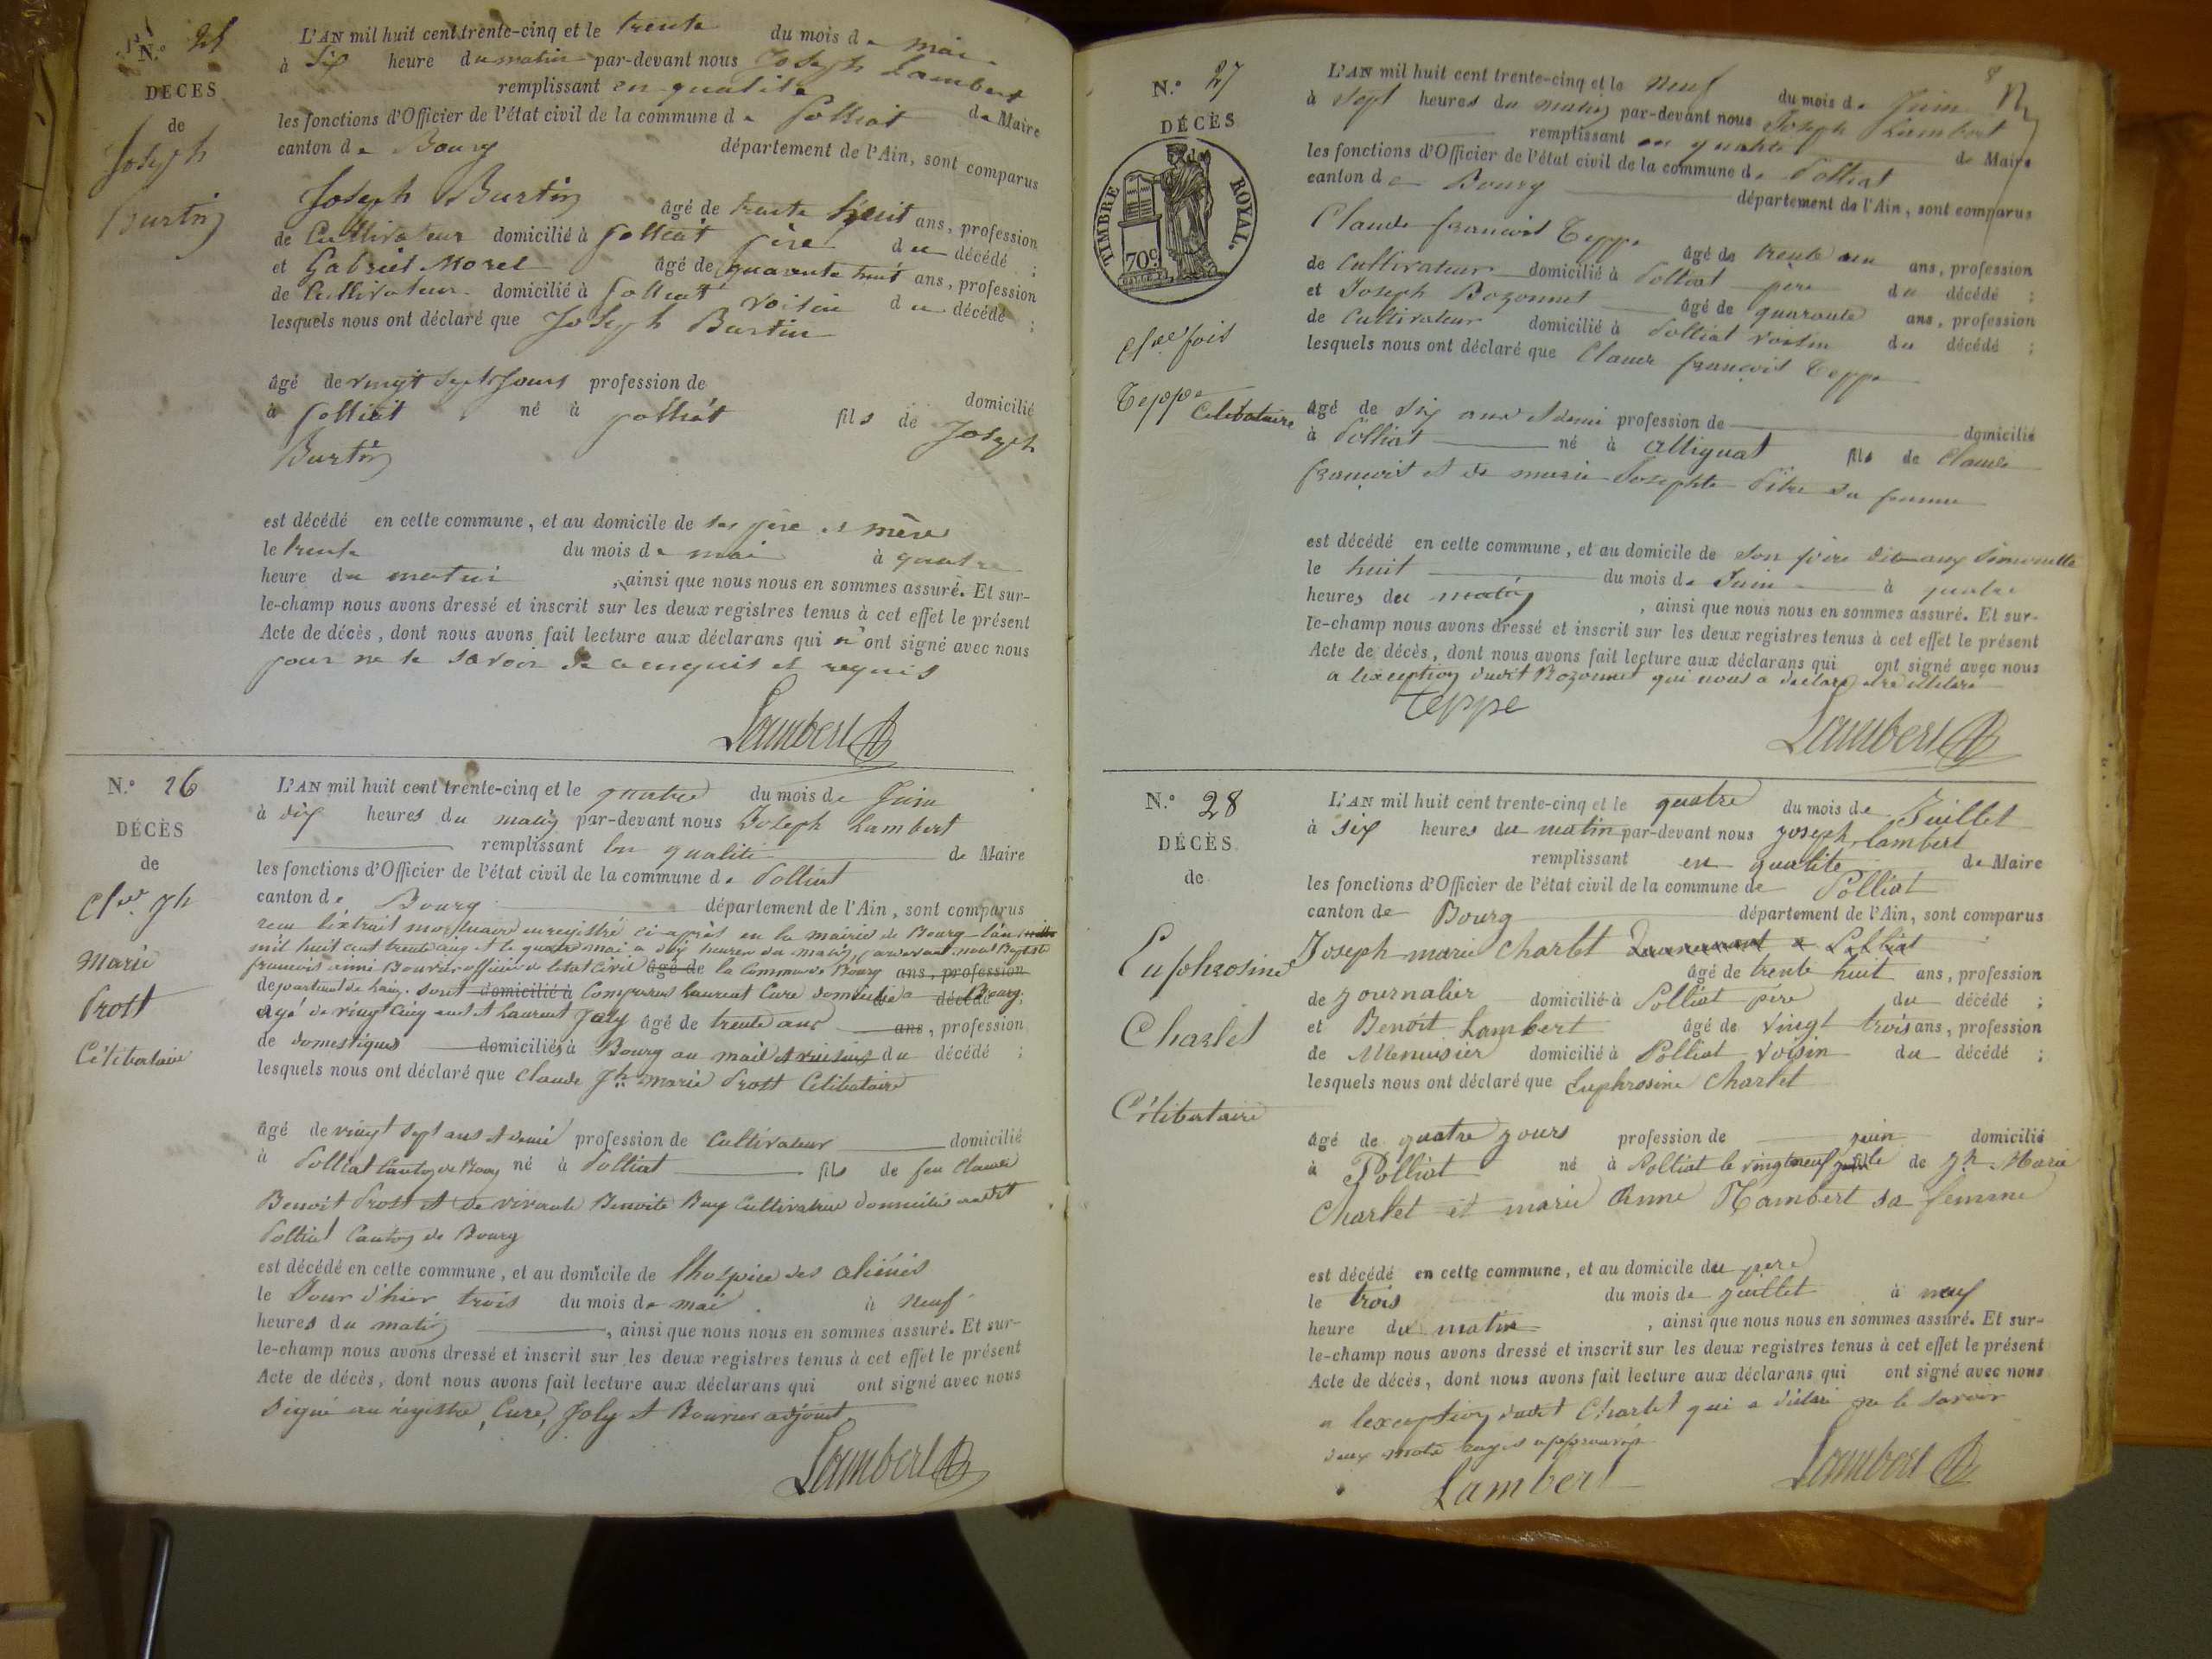 N.º 25
DÉCÈS
de
Joseph
Burtin
L'AN mil huit cent trente-cinq et le trente du mois de mai
à six heure du matin par-devant nous Joseph Lambert
remplissant en qualité de Maire
les fonctions d'Officier de l'état civil de la commune de Polliat
canton de Bourg département de l'Ain, sont comparus
Joseph Burtin âgé de trente huit ans, profession
de Cultivateur domicilié à Polliat père du décédé ;
et Gabriel Morel âgé de quarante huit ans, profession
de Cultivateur domicilié à Polliat voisin du décédé ;
lesquels nous ont déclaré que Joseph Burtin
âgé de vingt sept jours profession de domicilié
à Polliat né à Polliat fils de Joseph
Burtin
est décédé en cette commune, et au domicile de ses père et mère
le trente du mois de mai à quatre
heure du matin , ainsi que nous nous en sommes assuré. Et sur-
le-champ nous avons dressé et inscrit sur les deux registres tenus à cet effet le présent
Acte de décès, dont nous avons fait lecture aux déclarans qui n'ont signé avec nous
pour ne le savoir de ce enquis et requis
Lambert
N.º 26
DÉCÈS
de
Cl.de Jh
Marie
Prost
Célibataire
L'AN mil huit cent trente-cinq et le quatre du mois de Juin
à dix heures du matin par-devant nous Joseph Lambert
remplissant en qualité de Maire
les fonctions d'Officier de l'état civil de la commune de Polliat
canton de Bourg département de l'Ain, sont comparus
reçu l'extrait mortuaire enregistré ci-après en la mairie de Bourg l'an
mil huit cent trente cinq et le quatre mai à dix heures du matin, pardevant nous Baptiste
françois aimé Bouvier officier de l'état civil âgé de la Commune de Bourg ans, profession
département de l'ain. sont domicilié à Comparus Laurent Cure domicilié à décédé Bourg
âgé de vingt cinq ans et Laurent Joly âgé de trente ans ans, profession
de domestiques domiciliés à Bourg au mail et voisins du décédé ;
lesquels nous ont déclaré que Claude Jh marie Prost Célibataire
âgé de vingt sept ans et demi profession de Cultivateur domicilié
à Polliat Canton de Bourg né à Polliat fils de feu Claude
Benoit Prost et de vivante Benoite Buy Cultivatrice domiciliée audit
Polliat Canton de Bourg
est décédé en cette commune, et au domicile de l'hospice des aliénés
le Jour d'hier trois du mois de mai à neuf
heures du matin , ainsi que nous nous en sommes assuré. Et sur-
le-champ nous avons dressé et inscrit sur les deux registres tenus à cet effet le présent
Acte de décès, dont nous avons fait lecture aux déclarans qui ont signé avec nous
Signé au registre, Cure, Joly et Bouvier adjoint
Lambert
8
N.º 27
DÉCÈS
de
TIMBRE ROYAL.
70c
Cl.de fois
Teppe
Célibataire
L'AN mil huit cent trente-cinq et le neuf du mois de Juin
à sept heures du matin par-devant nous Joseph Lambert
remplissant en qualité de Maire
les fonctions d'Officier de l'état civil de la commune de Polliat
canton de Bourg département de l'Ain, sont comparus
Claude françois Teppe âgé de trente un ans, profession
de Cultivateur domicilié à Polliat père du décédé ;
et Joseph Bozonnet âgé de quarante ans, profession
de Cultivateur domicilié à Polliat voisin du décédé ;
lesquels nous ont déclaré que Claude françois Teppe
âgé de six ans et demi profession de domicilié
à Polliat né à Attignat fils de Claude
françois et de marie Josephte Pitre sa femme
est décédé en cette commune, et au domicile de son père
le huit du mois de Juin à quatre
heures du matin , ainsi que nous nous en sommes assuré. Et sur-
le-champ nous avons dressé et inscrit sur les deux registres tenus à cet effet le présent
Acte de décès, dont nous avons fait lecture aux déclarans qui ont signé avec nous
a lexception dudit Bozonnet qui nous a déclaré être illitéré
Teppe
Lambert
N.º 28
DÉCÈS
de
Euphrosine
Charlet
Célibataire
L'AN mil huit cent trente-cinq et le quatre du mois de Juillet
à six heures du matin par-devant nous joseph lambert
remplissant en qualité de Maire
les fonctions d'Officier de l'état civil de la commune de Polliat
canton de Bourg département de l'Ain, sont comparus
Joseph marie Charlet
âgé de trente huit ans, profession
de journalier domicilié à Polliat père du décédé ;
et Benoit Lambert âgé de vingt trois ans, profession
de Menuisier domicilié à Polliat voisin du décédé ;
lesquels nous ont déclaré que Euphrosine Charlet
âgé de quatre jours profession de juin domicilié
à Polliat né à Polliat le vingt neuf fille de Jh Marie
Charlet et marie Anne Rambert sa femme
est décédé en cette commune, et au domicile du père
le trois du mois de juillet à neuf
heure du matin , ainsi que nous nous en sommes assuré. Et sur-
le-champ nous avons dressé et inscrit sur les deux registres tenus à cet effet le présent
Acte de décès, dont nous avons fait lecture aux déclarans qui ont signé avec nous
a lexception dudit Charlet qui a déclaré ne le savoir
deux mots rayés approuvés
Lambert
Lambert